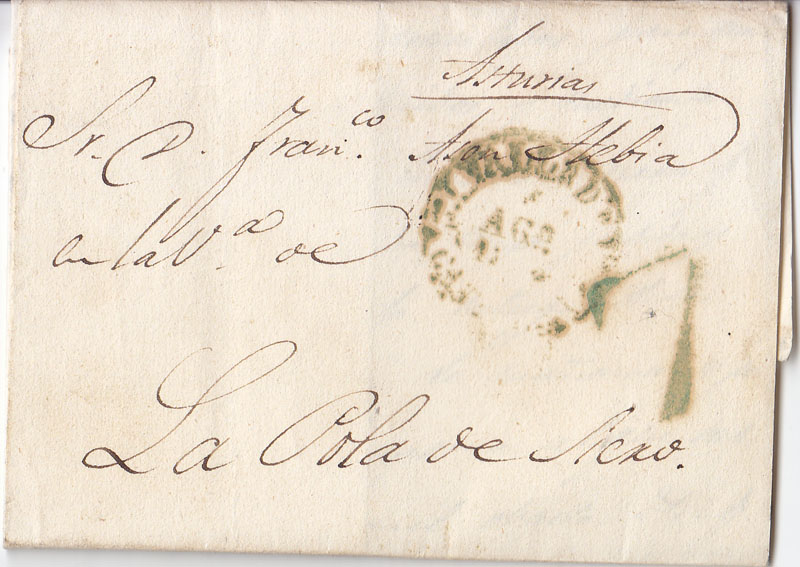 Asturias
Sr. D. Fran.co Anton Hebia
en la V.a de
AGO
7
La Pola de Siero.